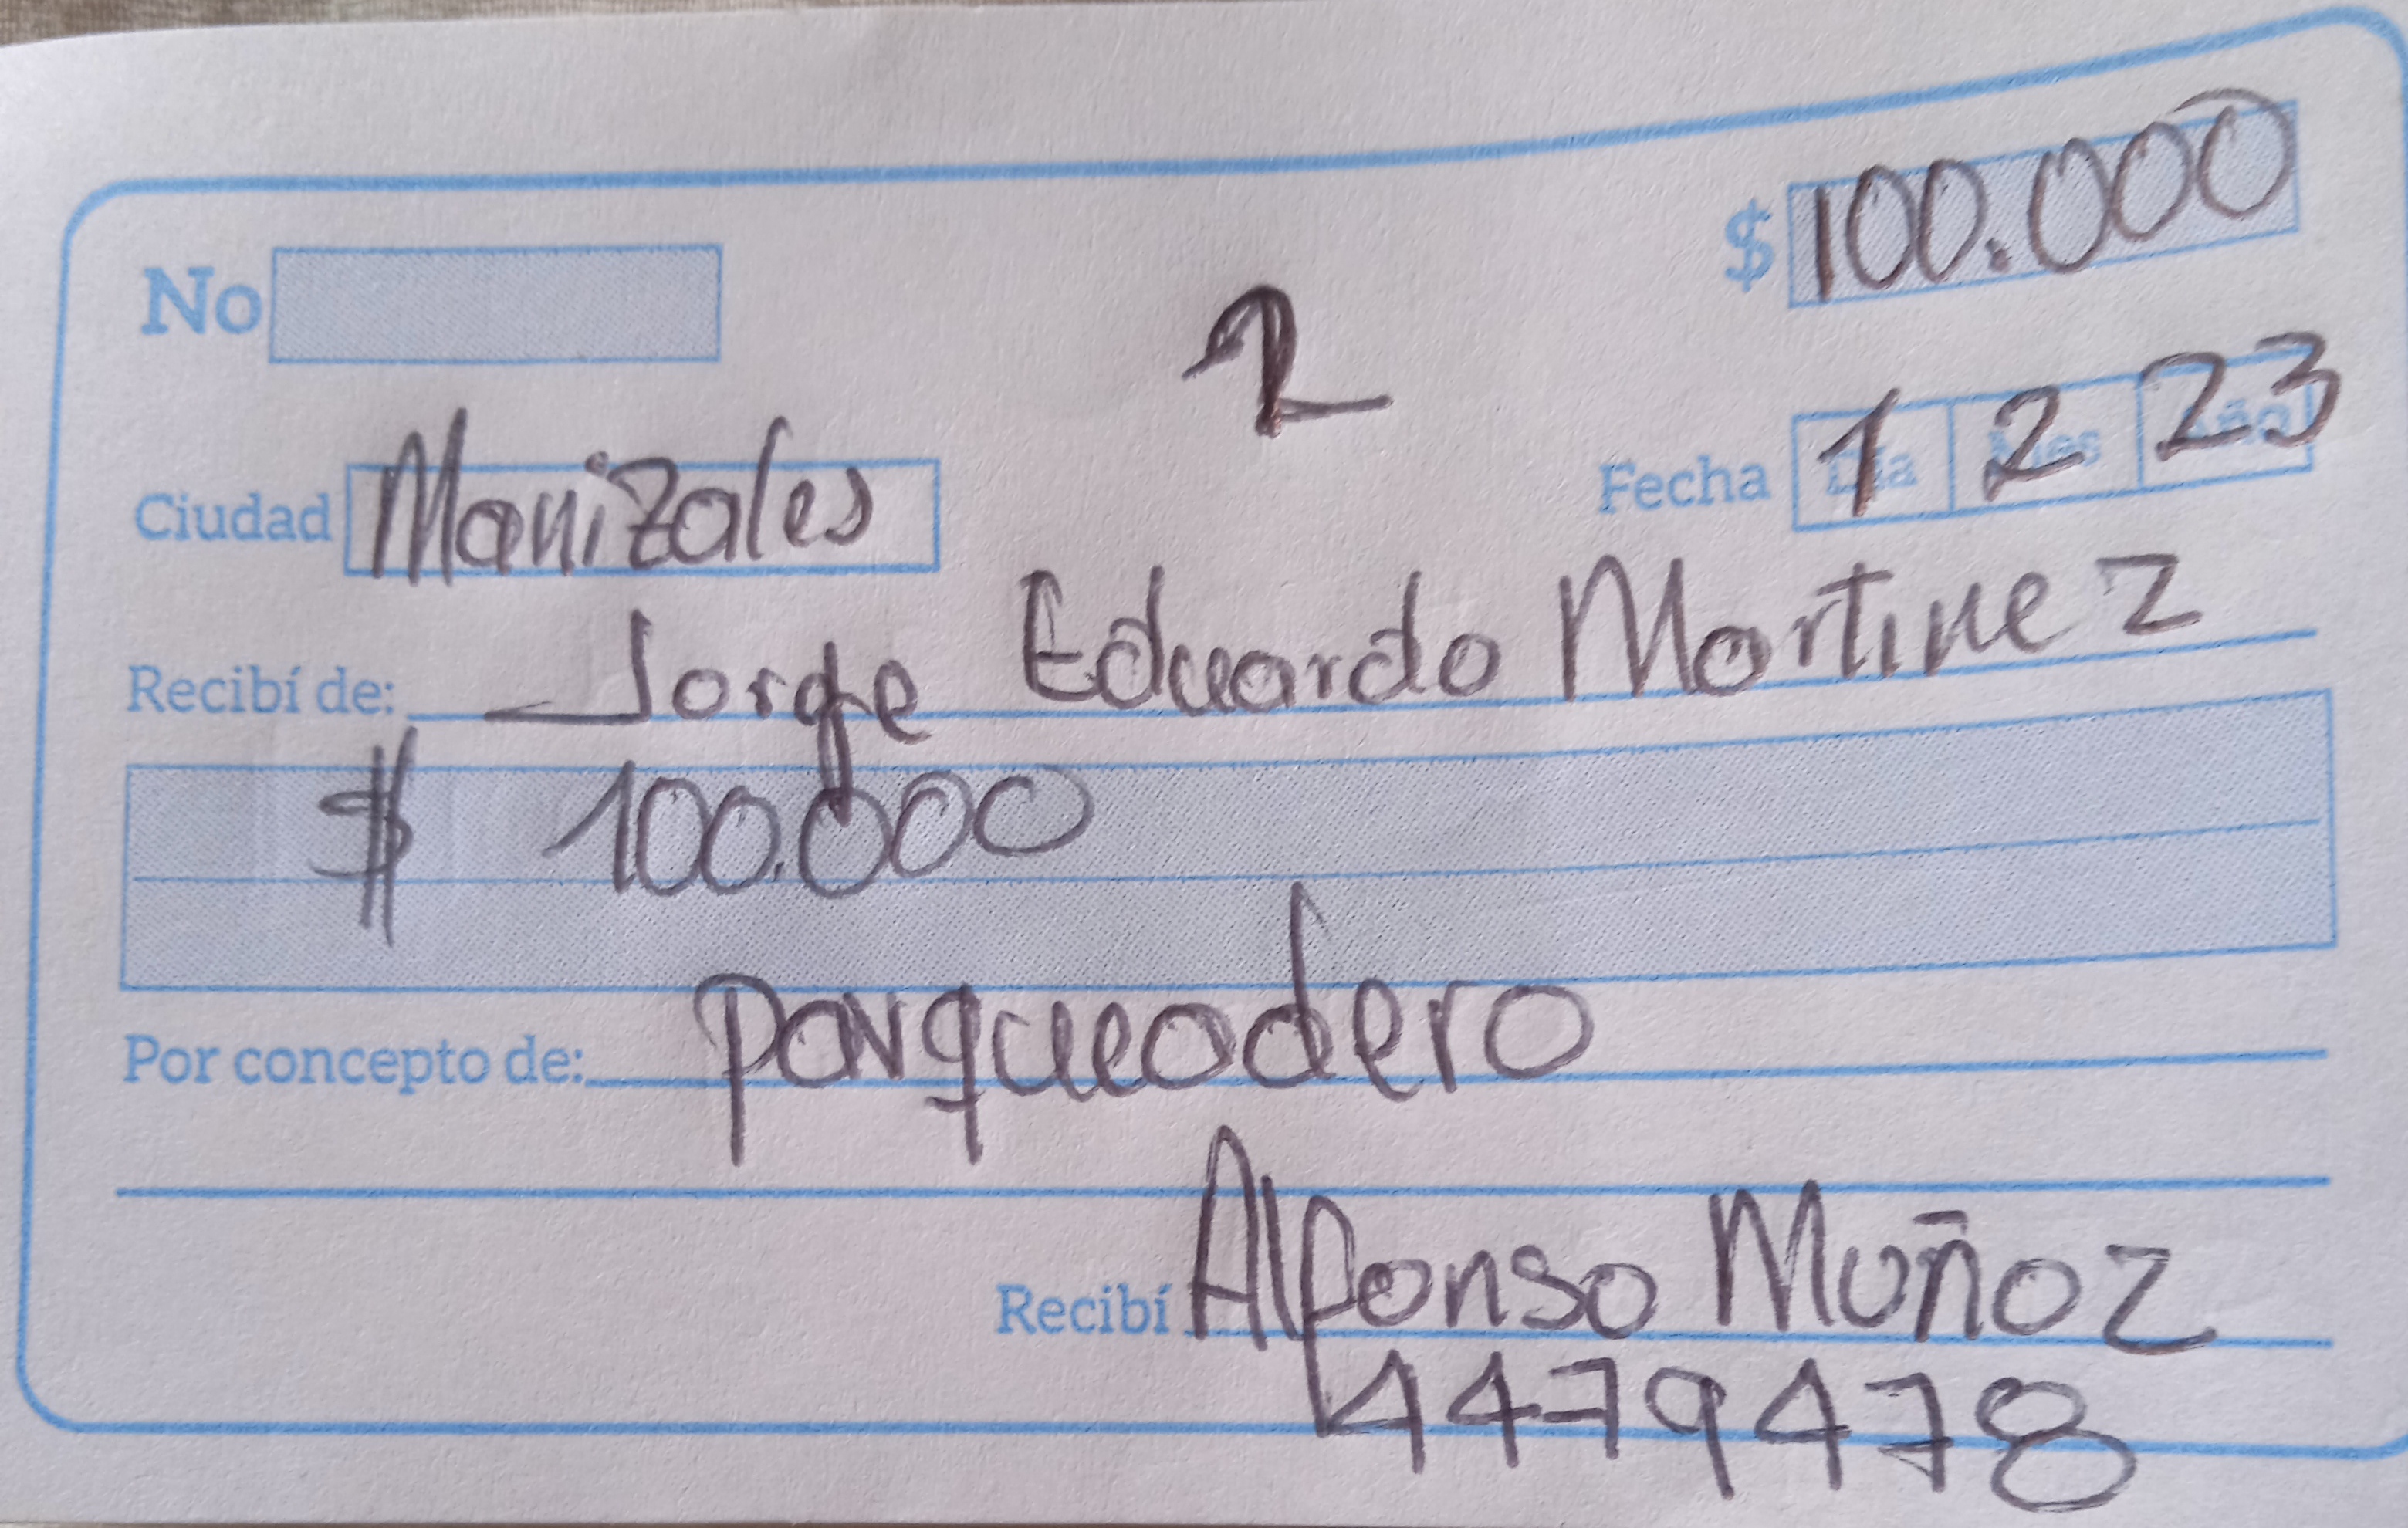 $ 100.000
No
2
Fecha 1 2 23
Ciudad Manizales
Recibí de: Jorge Eduardo Martinez
$ 100.000
Por concepto de: parqueadero
Recibí Alfonso Muñoz
4479478